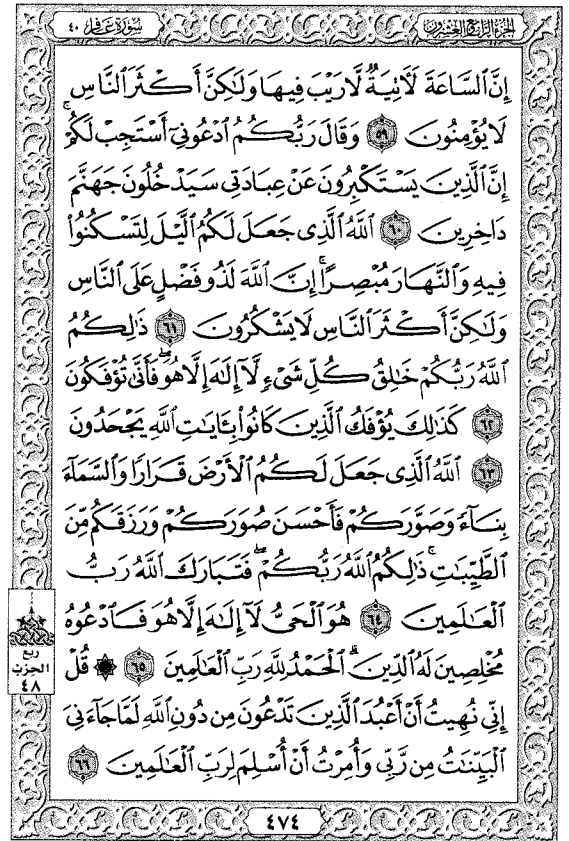 سورة غافر ٤٠
الجزء الرابع والعشرون
إِنَّ ٱلسَّاعَةَ لَءَاتِيَةٌ لَّا رَيْبَ فِيهَا وَلَٰكِنَّ أَكْثَرَ ٱلنَّاسِ
لَا يُؤْمِنُونَ ٥٩ وَقَالَ رَبُّكُمُ ٱدْعُونِىٓ أَسْتَجِبْ لَكُمْ ۚ
إِنَّ ٱلَّذِينَ يَسْتَكْبِرُونَ عَنْ عِبَادَتِى سَيَدْخُلُونَ جَهَنَّمَ
دَاخِرِينَ ٦٠ ٱللَّهُ ٱلَّذِى جَعَلَ لَكُمُ ٱلَّيْلَ لِتَسْكُنُوا۟
فِيهِ وَٱلنَّهَارَ مُبْصِرًا ۚ إِنَّ ٱللَّهَ لَذُو فَضْلٍ عَلَى ٱلنَّاسِ
وَلَٰكِنَّ أَكْثَرَ ٱلنَّاسِ لَا يَشْكُرُونَ ٦١ ذَٰلِكُمُ
ٱللَّهُ رَبُّكُمْ خَٰلِقُ كُلِّ شَىْءٍ لَّآ إِلَٰهَ إِلَّا هُوَ ۖ فَأَنَّىٰ تُؤْفَكُونَ
٦٢ كَذَٰلِكَ يُؤْفَكُ ٱلَّذِينَ كَانُوا۟ بِـَٔايَٰتِ ٱللَّهِ يَجْحَدُونَ
٦٣ ٱللَّهُ ٱلَّذِى جَعَلَ لَكُمُ ٱلْأَرْضَ قَرَارًا وَٱلسَّمَآءَ
بِنَآءً وَصَوَّرَكُمْ فَأَحْسَنَ صُوَرَكُمْ وَرَزَقَكُم مِّنَ
ٱلطَّيِّبَٰتِ ۚ ذَٰلِكُمُ ٱللَّهُ رَبُّكُمْ ۖ فَتَبَارَكَ ٱللَّهُ رَبُّ
ٱلْعَٰلَمِينَ ٦٤ هُوَ ٱلْحَىُّ لَآ إِلَٰهَ إِلَّا هُوَ فَٱدْعُوهُ
مُخْلِصِينَ لَهُ ٱلدِّينَ ۗ ٱلْحَمْدُ لِلَّهِ رَبِّ ٱلْعَٰلَمِينَ ٦٥ ۞ قُلْ
إِنِّى نُهِيتُ أَنْ أَعْبُدَ ٱلَّذِينَ تَدْعُونَ مِن دُونِ ٱللَّهِ لَمَّا جَآءَنِىَ
ٱلْبَيِّنَٰتُ مِن رَّبِّى وَأُمِرْتُ أَنْ أُسْلِمَ لِرَبِّ ٱلْعَٰلَمِينَ ٦٦
ربع
الحزب
٤٨
٤٧٤